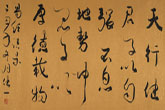 天行健
君子以
自强不息
地勢坤
君子以
厚德載物